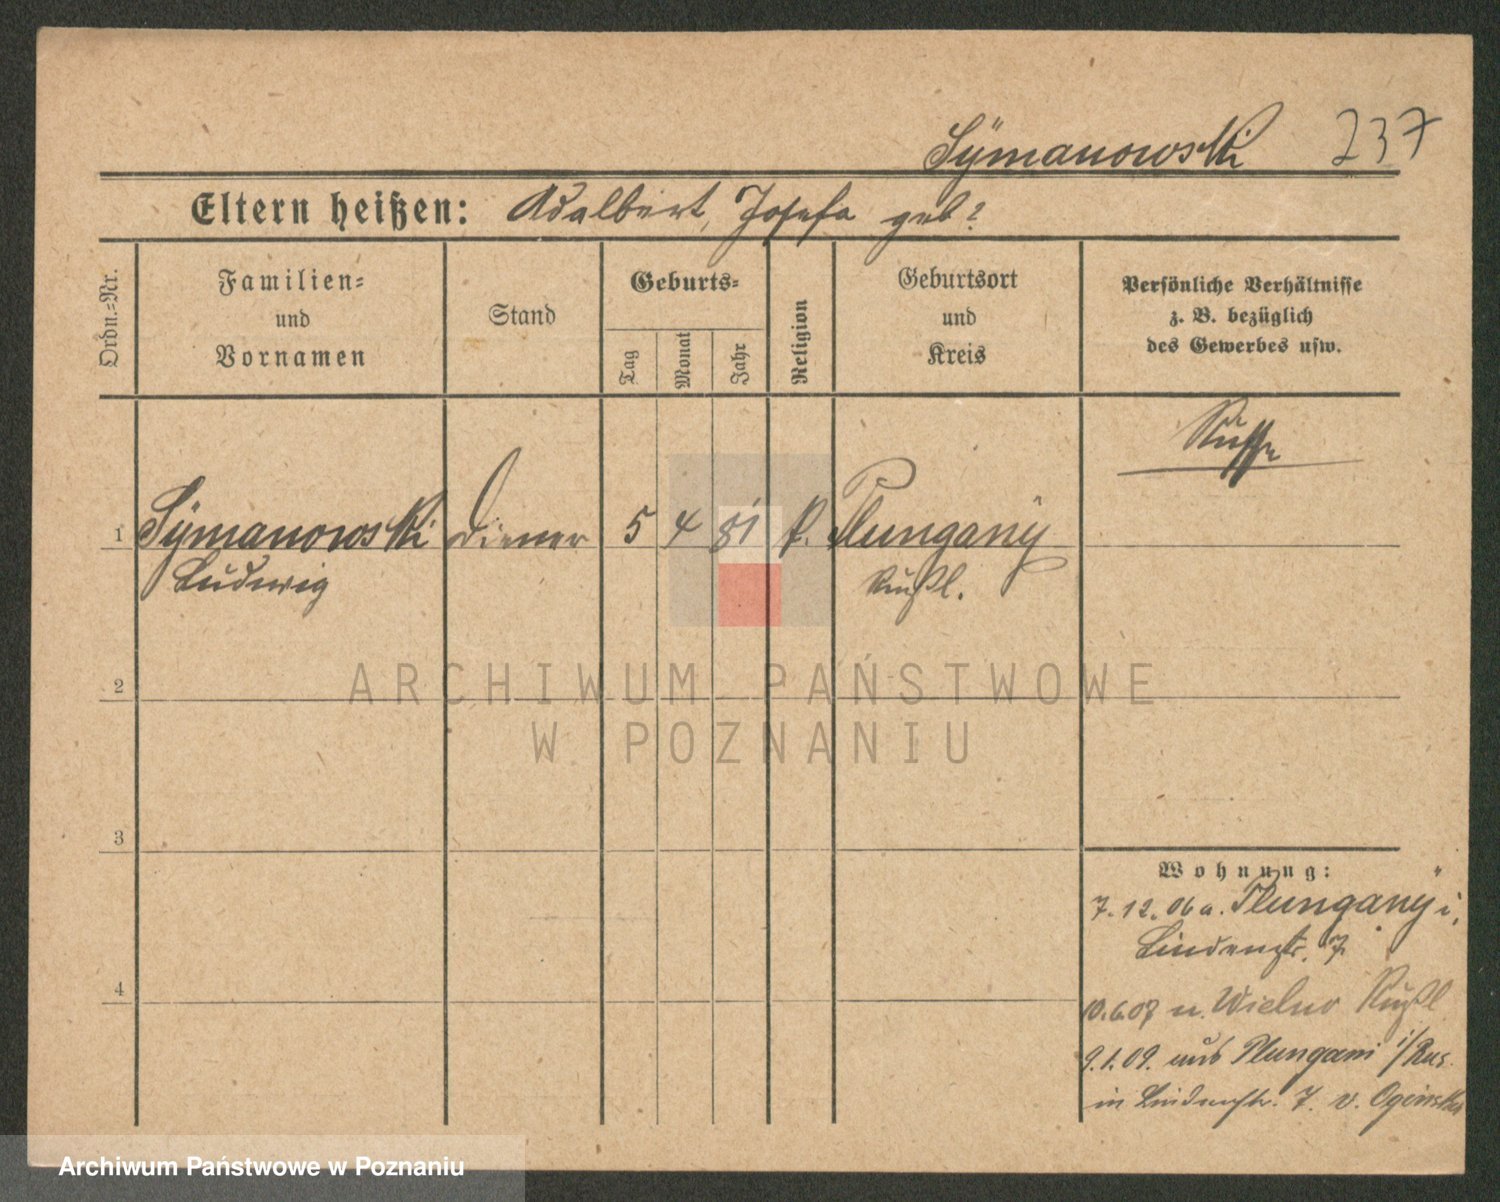 Sÿmanowski 237
Eltern heißen: Adalbert, Josefa geb?
Ordn.-Nr.
Familien-
und
Vornamen
Stand
Geburts-
Tag
Monat
Jahr
Religion
Geburtsort
und
Kreis
Persönliche Verhältnisse
z. B. bezüglich
des Gewerbes usw.
Russe
1 Sÿmanowski Diener 5 4 81 k. Plunganÿ
Ludwig Rußl.
2
3
4
Wohnung:
7.12.06 a. Plunganÿ i.
Lindenstr. 7
10.6.07 n. Wielno Rußl
9.1.09. aus Plungani i/Rus.
in Lindenstr. 7. v. Oginski
ARCHIWUM PAŃSTWOWE
W POZNANIU
Archiwum Państwowe w Poznaniu